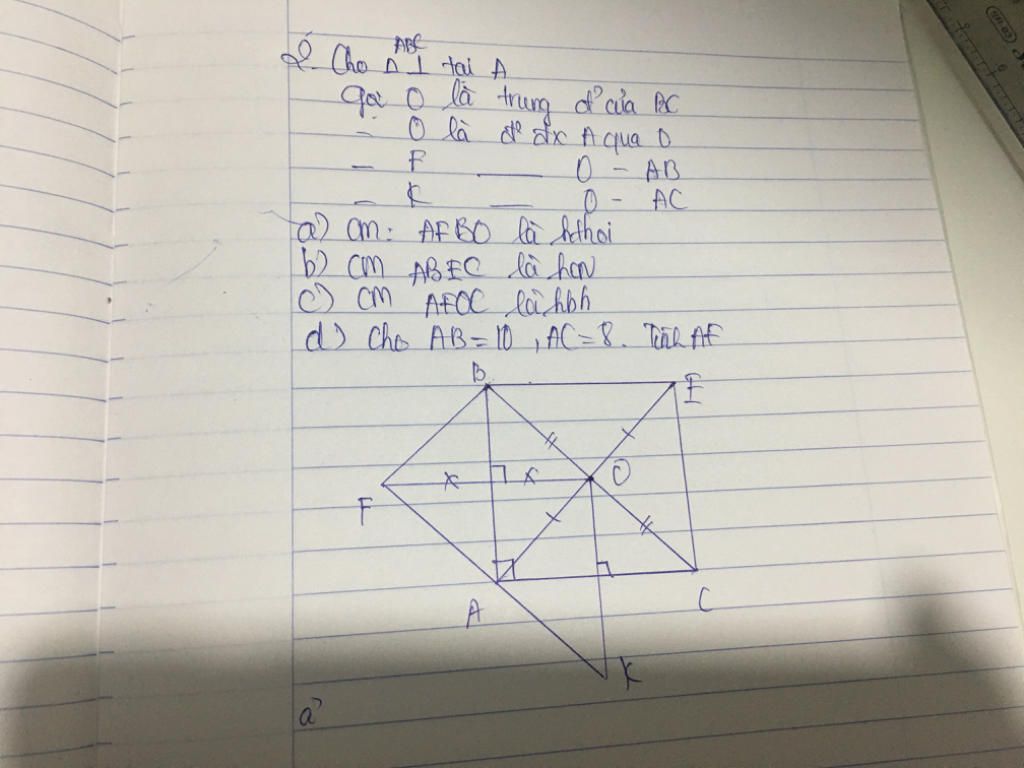 2. Cho Δ ABC ⊥ tại A
Gọi O là trung đ° của BC
- O là đ° đx A qua O
- F — O - AB
- K — O - AC
a) CM: AFBO là hthoi
b) CM ABEC là hcn
c) CM AFOC là hbh
d) Cho AB = 10, AC = 8. Tính AF
B E
F O
A C
K
a)